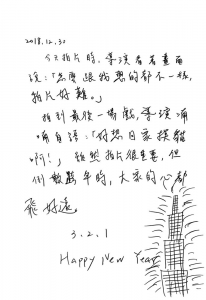 2018.12.30
今天拍片時,導演看著畫面
說:「怎麼跟我想的都不一樣,
拍片好難。」
拍到最後一場戲,導演喃
喃自語:「好想回家摸貓
啊!」雖然拍片很重要,但
倒數跨年時,大家的心都
飛好遠。
3.2.1
Happy New Year